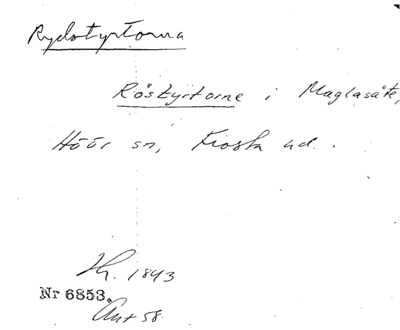 Rydstyrtorna
Röstyrtorne i Maglasäte,
Höör sn, Frosta hd.
Hh. 1843
Nr 6853.
Ant 58